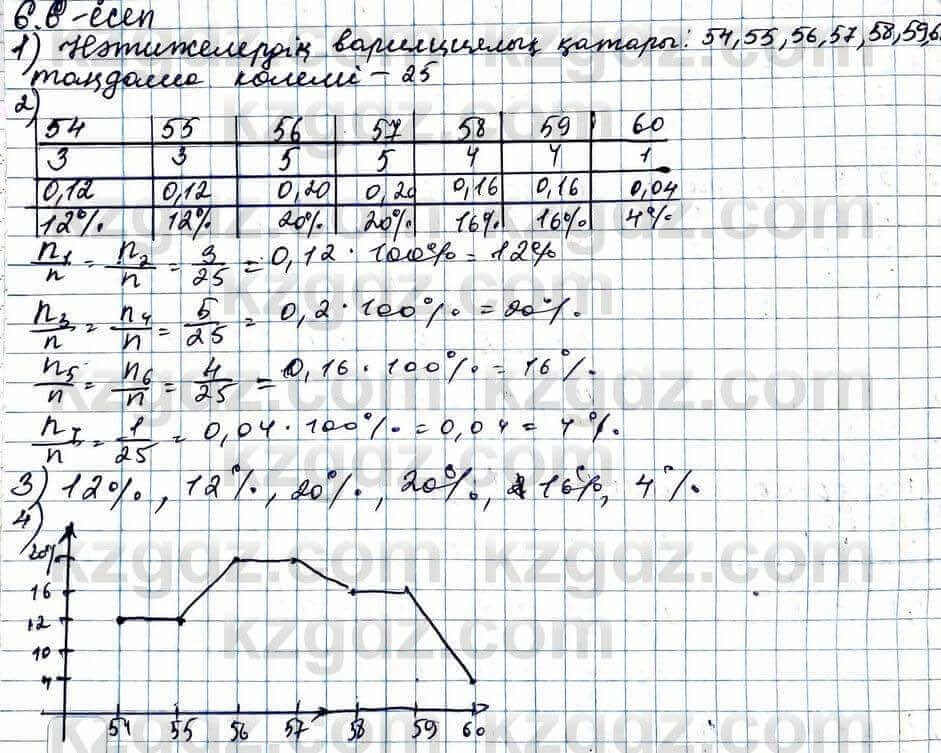 6.8-есеп
1) Нәтижелердің вариациялық қатары: 54, 55, 56, 57, 58, 59, 6
таңдама көлемі - 25
2)
54 55 56 57 58 59 60
3 3 5 5 4 4 1
0,12 0,12 0,20 0,20 0,16 0,16 0,04
12% 12% 20% 20% 16% 16% 4%
n1/n = n2/n = 3/25 = 0,12 · 100% = 12%
n3/n = n4/n = 5/25 = 0,2 · 100% = 20%.
n5/n = n6/n = 4/25 = 0,16 · 100% = 16%.
n7/n = 1/25 = 0,04 · 100% = 0,04 = 4%.
3) 12%, 12%, 20%, 20%, 16%, 4%.
4)
20%
16
12
10
4
54 55 56 57 58 59 60
kzgdz.com